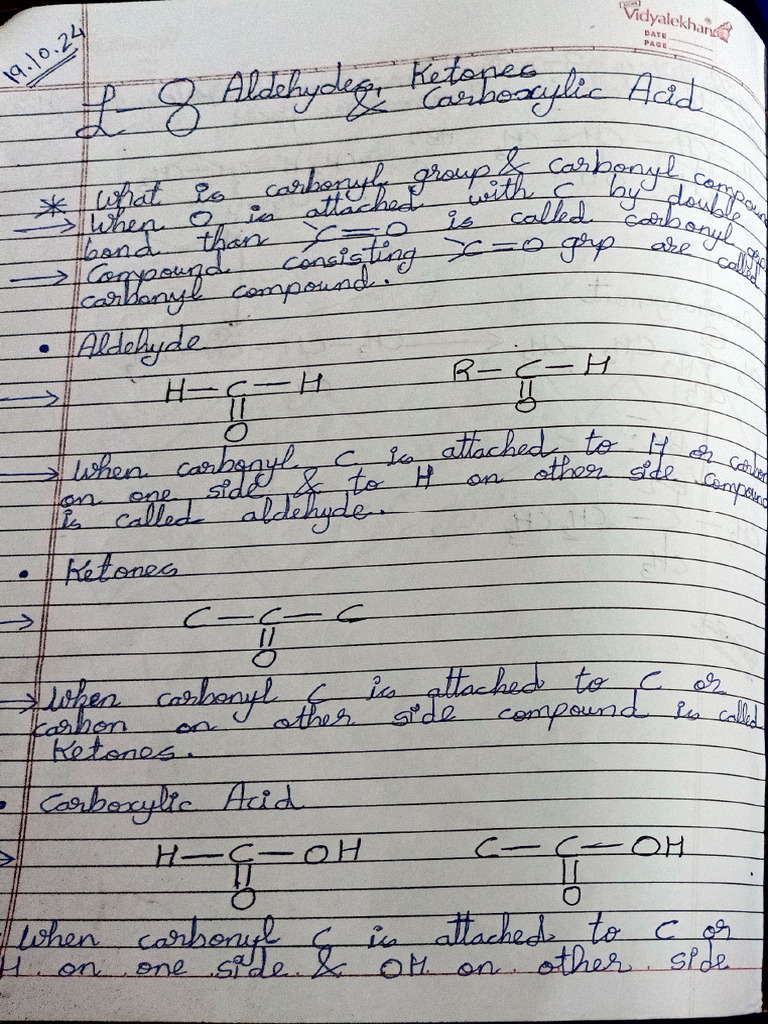 Vidyalekhan
DATE
PAGE
19.10.24
L-8 Aldehydes, Ketones
& Carboxylic Acid
* What is carbonyl group & carbonyl compound
→ When O is attached with C by double
bond than >C=O is called carbonyl grp
→ Compound consisting >C=O grp are called
carbonyl compound.
• Aldehyde
→ H—C—H R—C—H
|| ||
O O
→ When carbonyl C is attached to H or carbon
on one side & to H on other side compound
is called aldehyde.
• Ketones
→ C—C—C
||
O
→ When carbonyl C is attached to C or
carbon on other side compound is called
Ketones.
• Carboxylic Acid
→ H—C—OH C—C—OH
|| ||
O O
When carbonyl C is attached to C or
H on one side & OH on other side